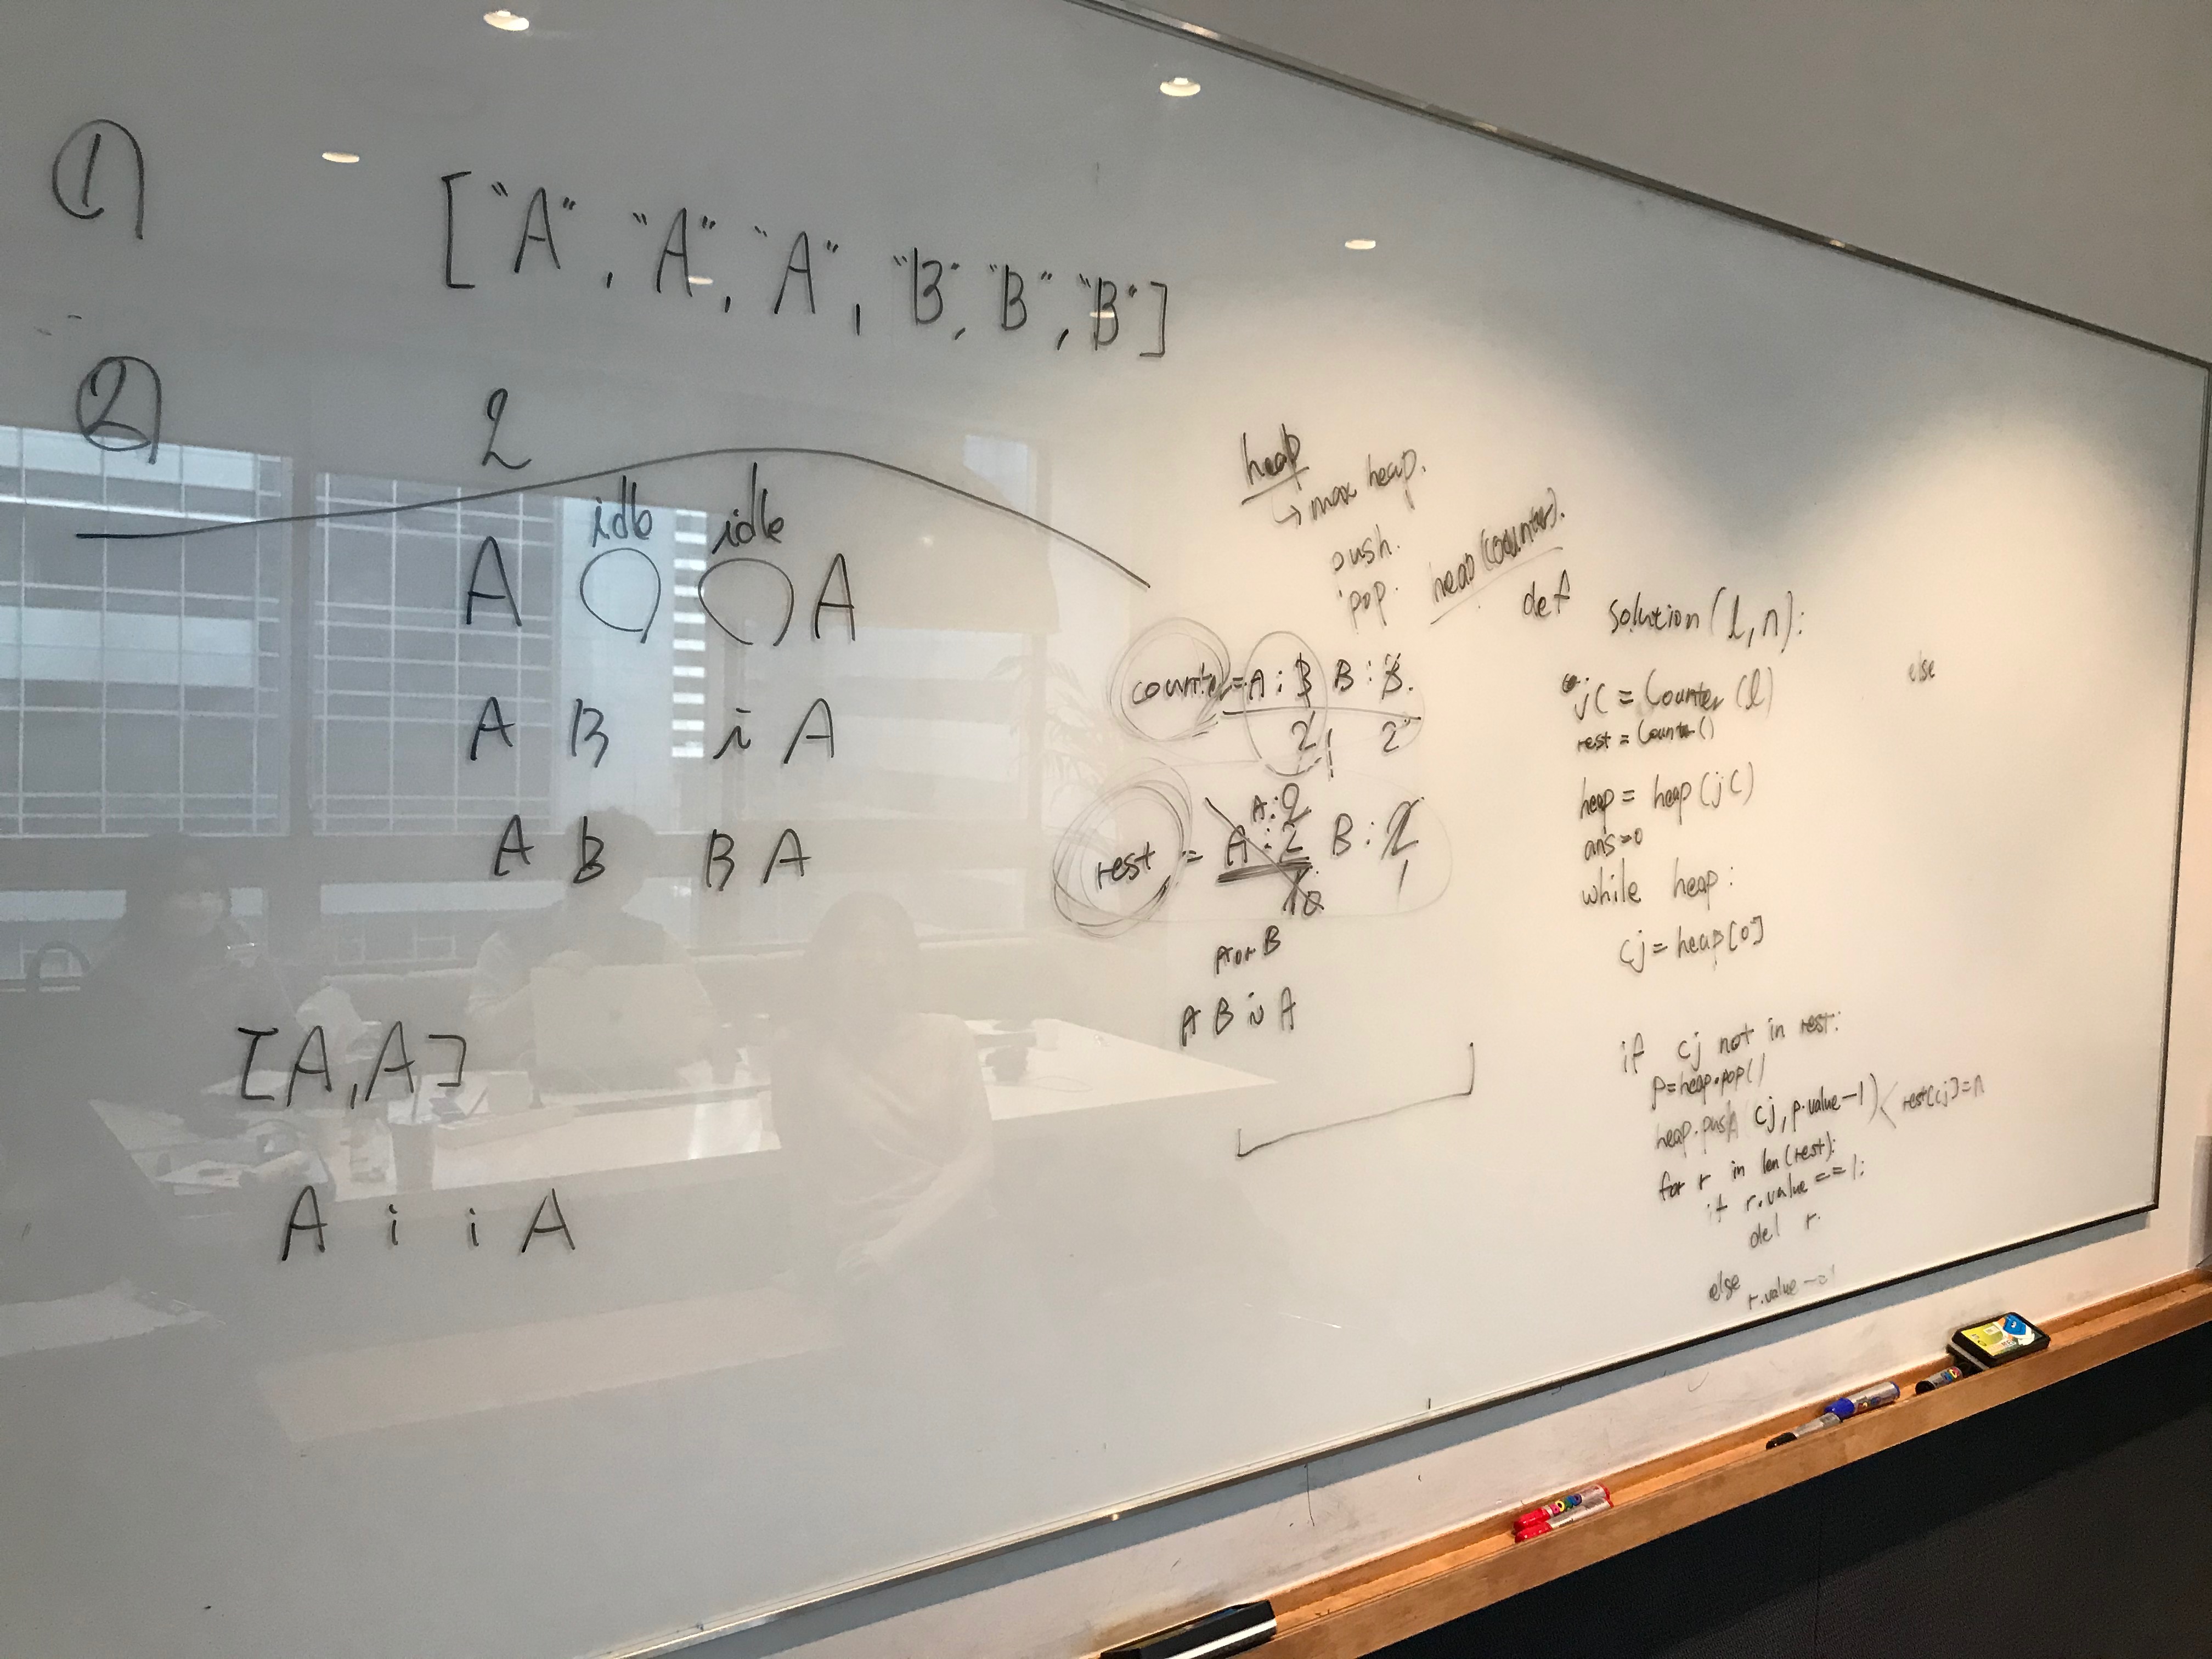 ① ["A", "A", "A", "B", "B", "B"]
② 2
idle idle
A ○ ○ A
A B i A
A B B A
[A, A]
A i i A
heap
→ max heap.
push.
pop.
heap(counter).
counter = A : 3 B : 3.
2 1 2
A : 2
rest = A : 2 B : 2
1 0 1
A or B
A B i A
def solution(l, n):
jc = Counter(l)
rest = Counter()
heap = heap(jc)
ans=0
while heap:
cj = heap[0]
if cj not in rest:
p=heap.pop()
heap.push(cj, p.value-1) < rest[cj]=n
for r in len(rest):
if r.value == 1:
del r.
else
r.value
else